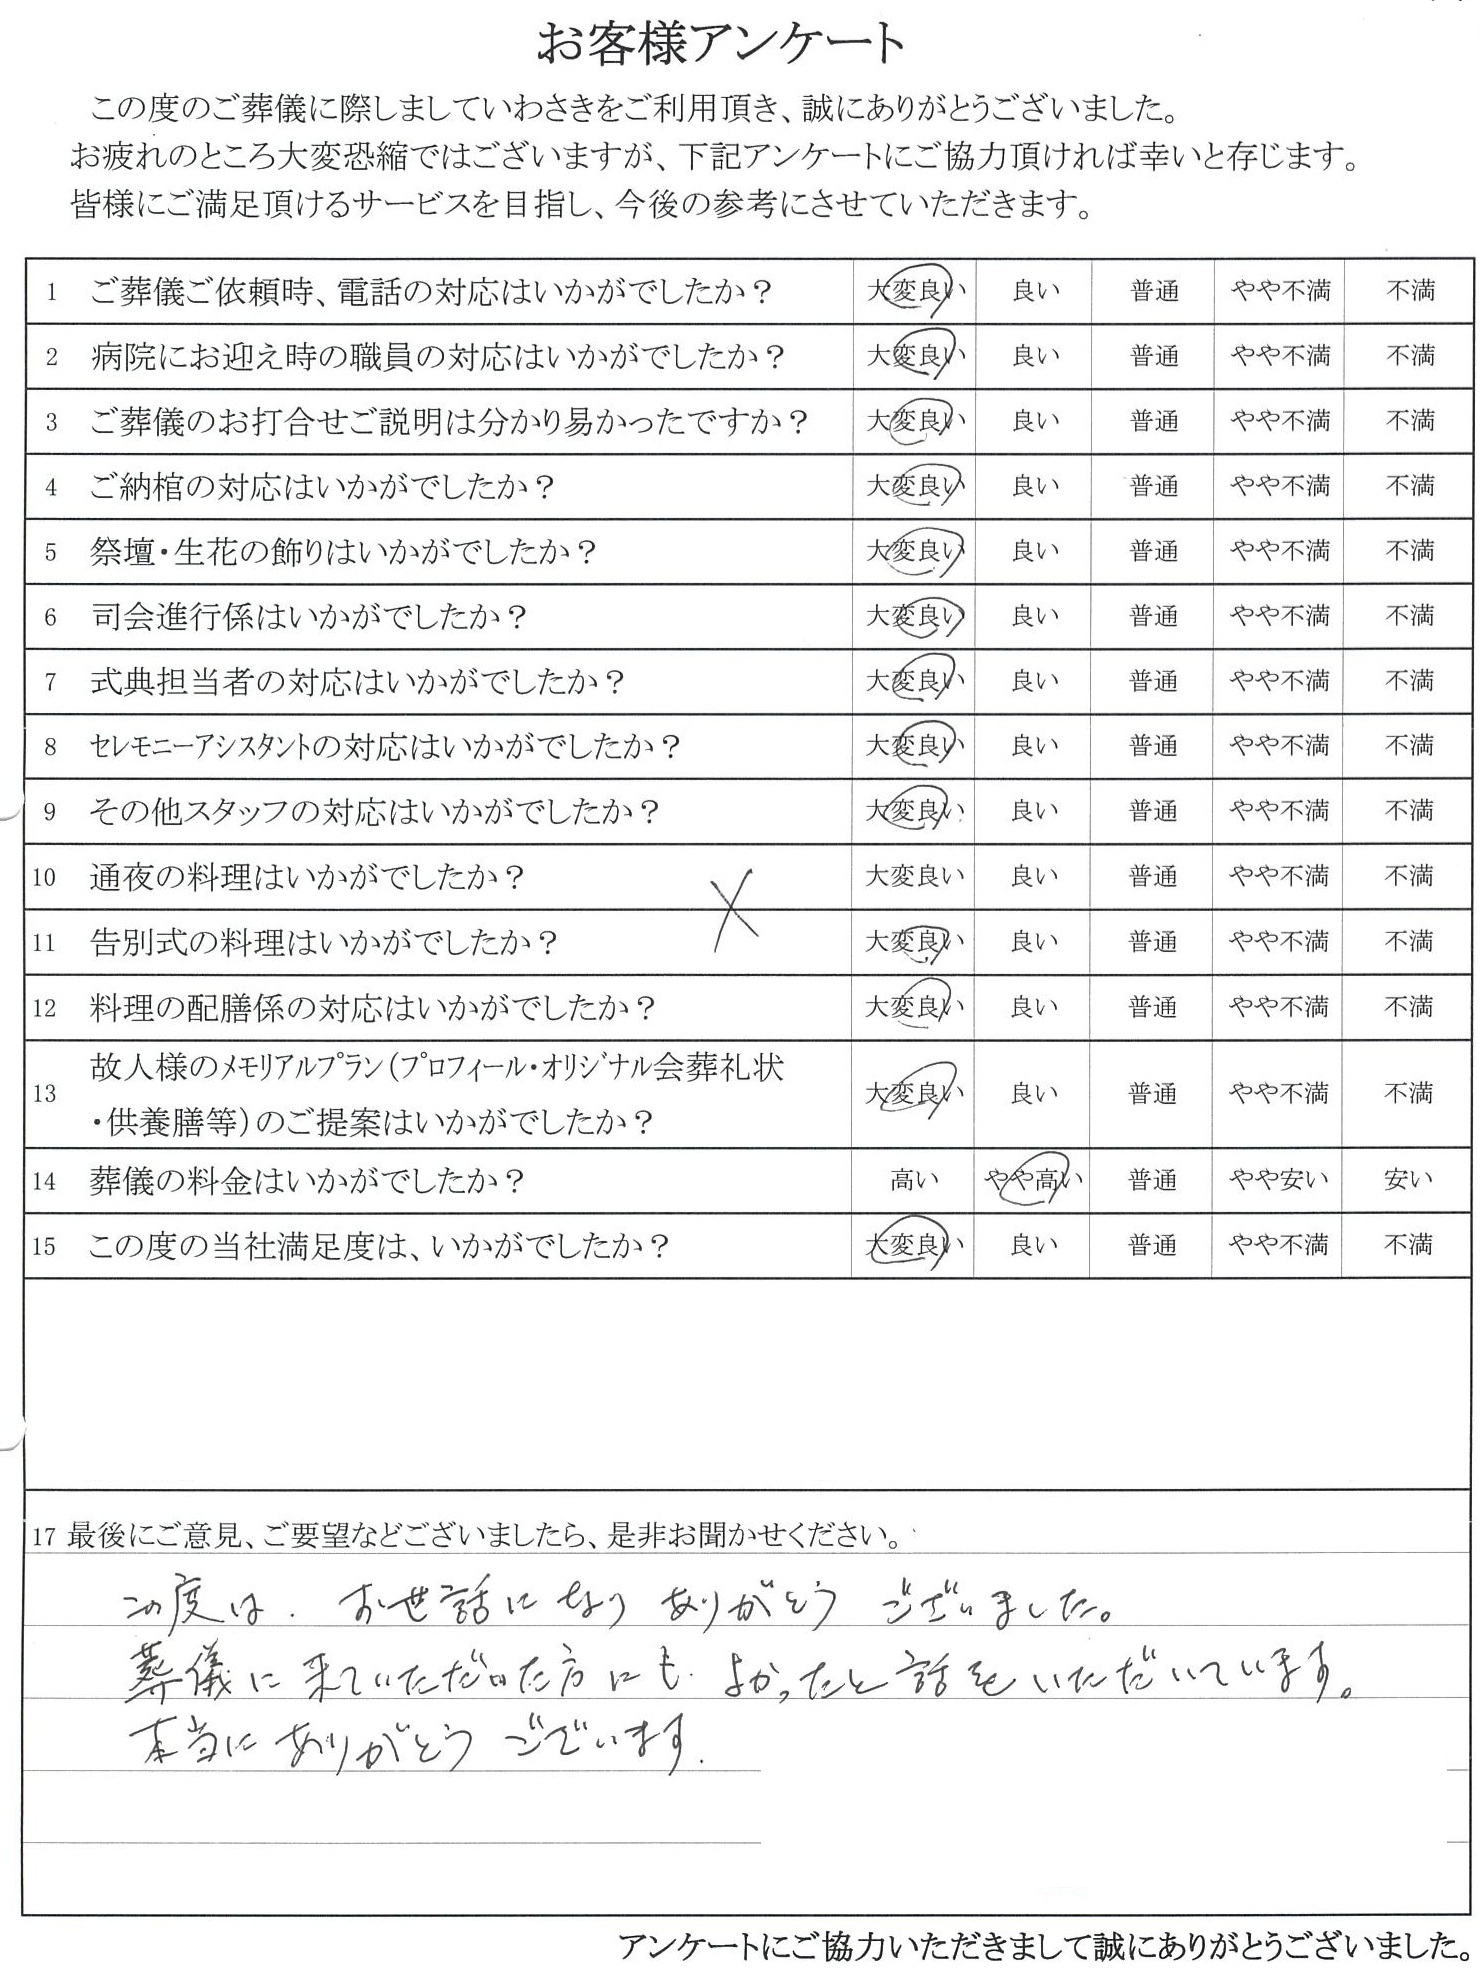 お客様アンケート
この度のご葬儀に際しましていわさきをご利用頂き、誠にありがとうございました。
お疲れのところ大変恐縮ではございますが、下記アンケートにご協力頂ければ幸いと存じます。
皆様にご満足頂けるサービスを目指し、今後の参考にさせていただきます。
1 ご葬儀ご依頼時、電話の対応はいかがでしたか? 大変良い 良い 普通 やや不満 不満
2 病院にお迎え時の職員の対応はいかがでしたか? 大変良い 良い 普通 やや不満 不満
3 ご葬儀のお打合せご説明は分かり易かったですか? 大変良い 良い 普通 やや不満 不満
4 ご納棺の対応はいかがでしたか? 大変良い 良い 普通 やや不満 不満
5 祭壇・生花の飾りはいかがでしたか? 大変良い 良い 普通 やや不満 不満
6 司会進行係はいかがでしたか? 大変良い 良い 普通 やや不満 不満
7 式典担当者の対応はいかがでしたか? 大変良い 良い 普通 やや不満 不満
8 セレモニーアシスタントの対応はいかがでしたか? 大変良い 良い 普通 やや不満 不満
9 その他スタッフの対応はいかがでしたか? 大変良い 良い 普通 やや不満 不満
10 通夜の料理はいかがでしたか? 大変良い 良い 普通 やや不満 不満
11 告別式の料理はいかがでしたか? 大変良い 良い 普通 やや不満 不満
12 料理の配膳係の対応はいかがでしたか? 大変良い 良い 普通 やや不満 不満
13 故人様のメモリアルプラン(プロフィール・オリジナル会葬礼状
・供養膳等)のご提案はいかがでしたか? 大変良い 良い 普通 やや不満 不満
14 葬儀の料金はいかがでしたか? 高い やや高い 普通 やや安い 安い
15 この度の当社満足度は、いかがでしたか? 大変良い 良い 普通 やや不満 不満
17 最後にご意見、ご要望などございましたら、是非お聞かせください。
この度は、お世話になり ありがとう ございました。
葬儀に来ていただいた方にも よかったと話をいただいています。
本当に ありがとう ございます.
アンケートにご協力いただきまして誠にありがとうございました。